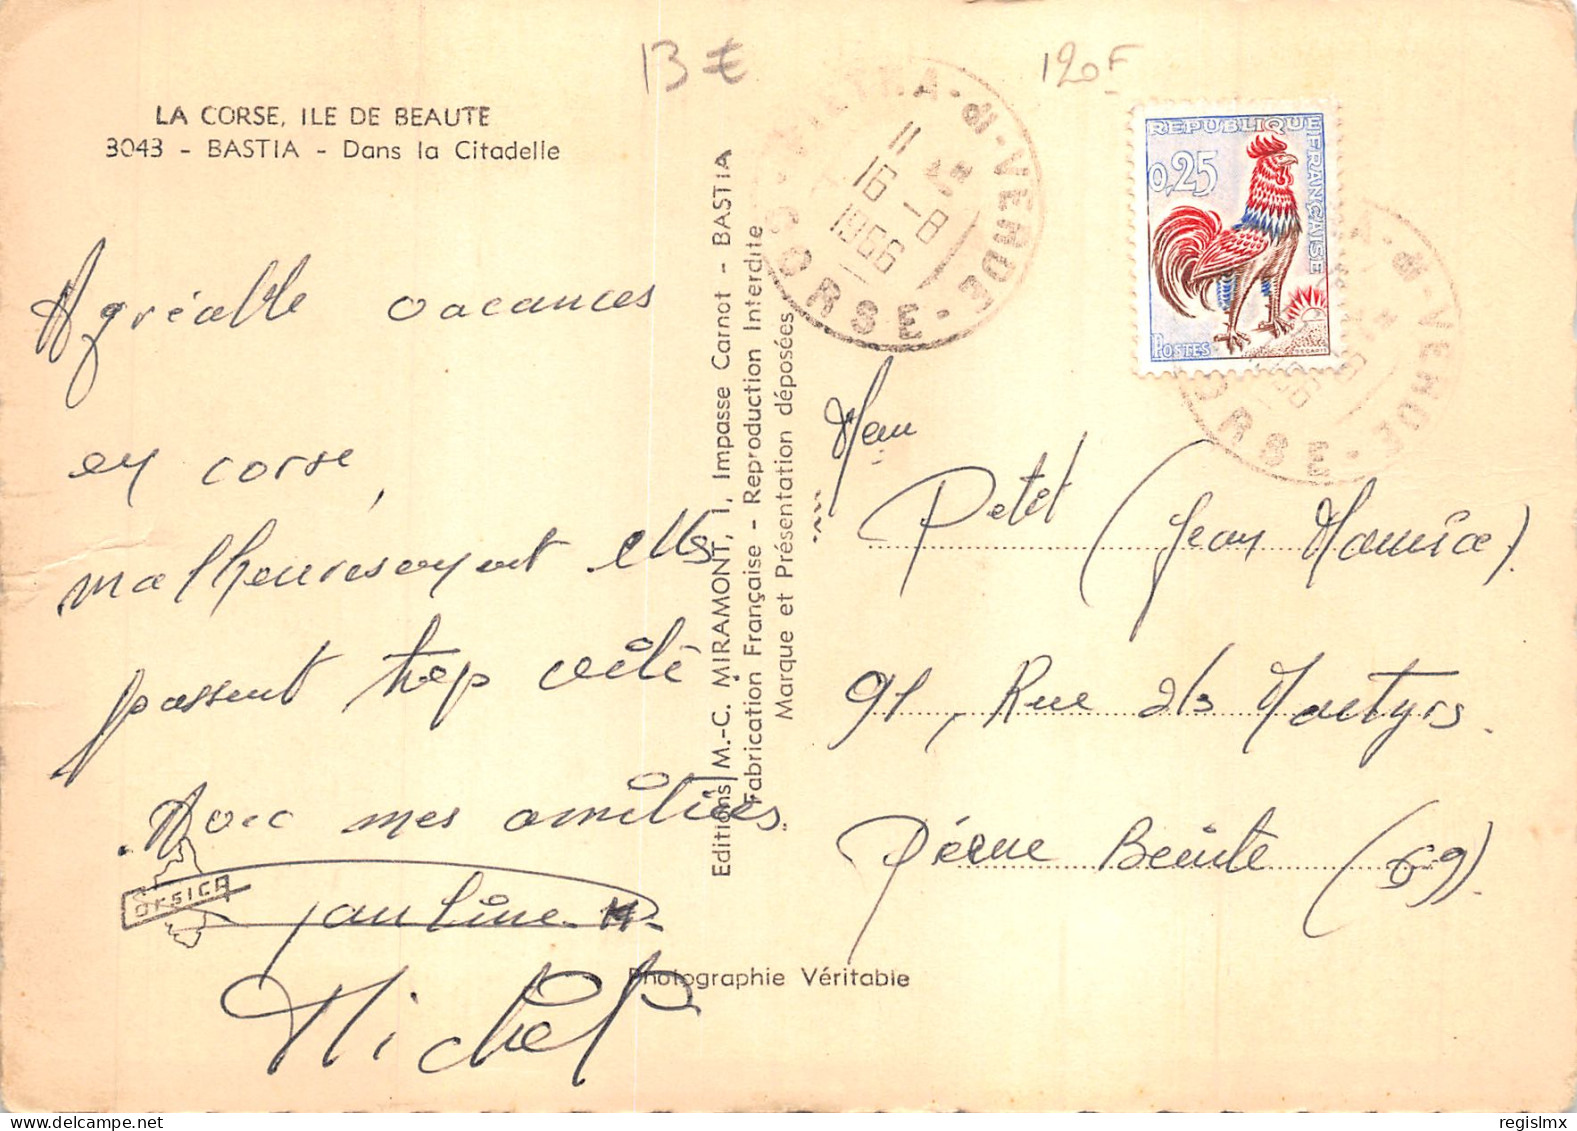 13 €
120F
LA CORSE, ILE DE BEAUTE
3043 - BASTIA - Dans la Citadelle
Agréable vacances
en corse,
malheureusement elles
passent trop vite
Avec mes amitiées.
Corsica
Pauline M.
Michel
Photographie Véritable
Editions M.-C. MIRAMONT, 1, Impasse Carnot - BASTIA
Fabrication Française - Reproduction Interdite
Marque et Présentation déposées
PIETRA - di - VERDE - CORSE
11 H
16 - 8
1966
REPUBLIQUE FRANÇAISE
0,25
POSTES
DECARIS
PIETRA - di - VERDE - CORSE
Petit (Jean Maurice)
91, Rue des Martyrs.
Pierre Bénite (69).
regislmx